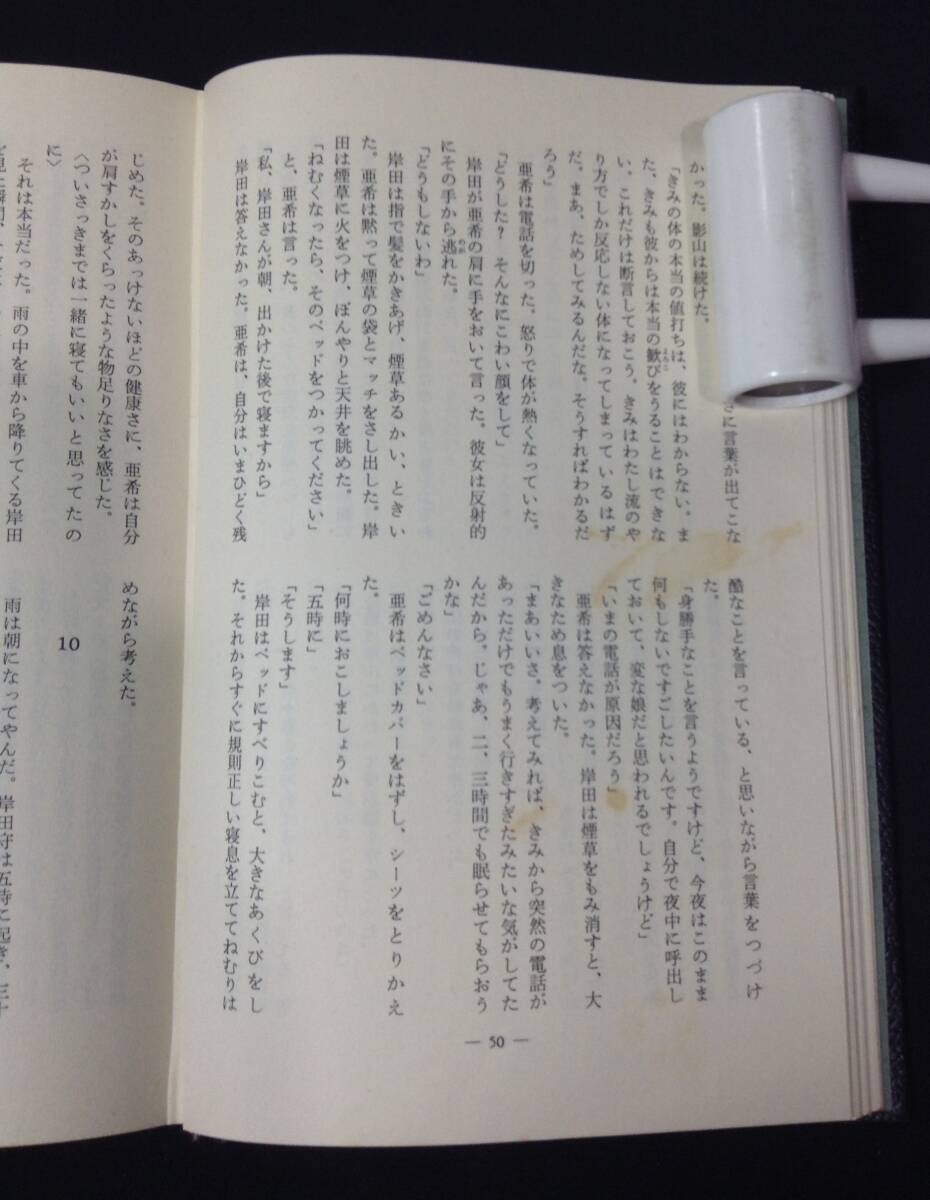 さに言葉が出てこな
かった。影山は続けた。
「きみの体の本当の値打ちは、彼にはわからない。ま
た、きみも彼からは本当の歓びをうることはできな
い、これだけは断言しておこう。きみはわたし流のや
り方でしか反応しない体になってしまっているはず
だ。まあ、ためしてみるんだな。そうすればわかるだ
ろう」
亜希は電話を切った。怒りで体が熱くなっていた。
「どうした? そんなにこわい顔をして」
岸田が亜希の肩に手をおいて言った。彼女は反射的
にその手から逃れた。
「どうもしないわ」
岸田は指で髪をかきあげ、煙草あるかい、ときい
た。亜希は黙って煙草の袋とマッチをさし出した。岸
田は煙草に火をつけ、ぼんやりと天井を眺めた。
「ねむくなったら、そのベッドをつかってください」
と、亜希は言った。
「私、岸田さんが朝、出かけた後で寝ますから」
岸田は答えなかった。亜希は、自分はいまひどく残
酷なことを言っている、と思いながら言葉をつづけ
た。
「身勝手なことを言うようですけど、今夜はこのまま
何もしないですごしたいんです。自分で夜中に呼出し
ておいて、変な娘だと思われるでしょうけど」
「いまの電話が原因だろう」
亜希は答えなかった。岸田は煙草をもみ消すと、大
きなため息をついた。
「まあいいさ。考えてみれば、きみから突然の電話が
あっただけでもうまく行きすぎたみたいな気がしてた
んだから。じゃあ、二、三時間でも眠らせてもらおう
かな」
「ごめんなさい」
亜希はベッドカバーをはずし、シーツをとりかえ
た。
「何時におこしましょうか」
「五時に」
「そうします」
岸田はベッドにすべりこむと、大きなあくびをし
た。それからすぐに規則正しい寝息を立ててねむりは
— 50 —
じめた。そのあっけないほどの健康さに、亜希は自分
が肩すかしをくらったような物足りなさを感じた。
〈ついさっきまでは一緒に寝てもいいと思ってたの
に〉
それは本当だった。雨の中を車から降りてくる岸田
めながら考えた。
10
雨は朝になってやんだ。岸田守は五時に起き、三十